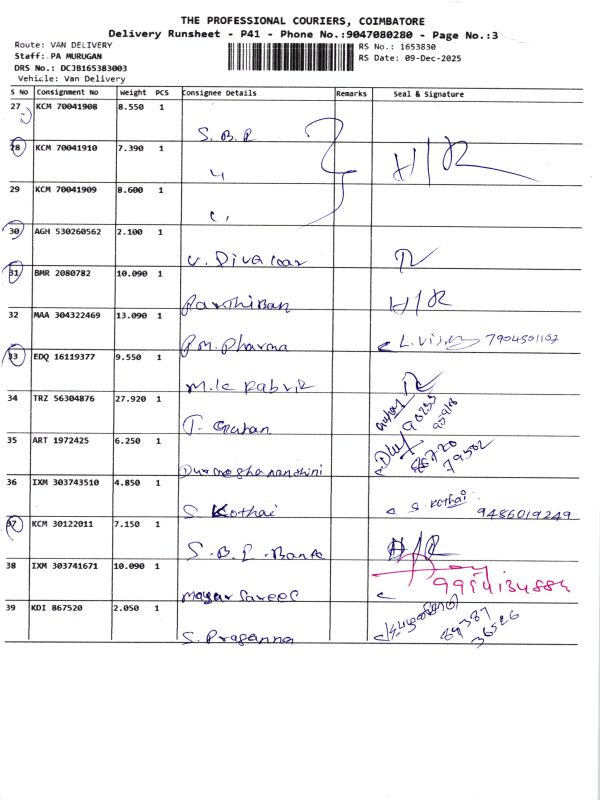 THE PROFESSIONAL COURIERS, COIMBATORE
Delivery Runsheet - P41 - Phone No.:9047080280 - Page No.:3
Route: VAN DELIVERY
Staff: PA MURUGAN
DRS No.: DCJB165383003
Vehicle: Van Delivery
RS No.: 1653830
RS Date: 09-Dec-2025
S No Consignment No Weight PCS Consignee Details Remarks Seal & Signature
27 KCM 70041908 8.550 1 S.B.R
28 KCM 70041910 7.390 1 " H/R
29 KCM 70041909 8.600 1 "
30 AGH 530260562 2.100 1 V. Divakar
31 BMR 2080782 10.090 1 Parthiban H/R
32 MAA 304322469 13.090 1 P.M. Pharma 7904501107
33 EDQ 16119377 9.550 1 M.K Fabrik
34 TRZ 56304876 27.920 1 T. Guhan
35 ART 1972425 6.250 1
36 IXM 303743510 4.850 1 S. Kothai S. Kothai 9486019249
37 KCM 30122011 7.150 1 S.B.I. Bank H/R
38 IXM 303741671 10.090 1 9994134884
39 KDI 867520 2.050 1 S. Prasanna 89387 36526